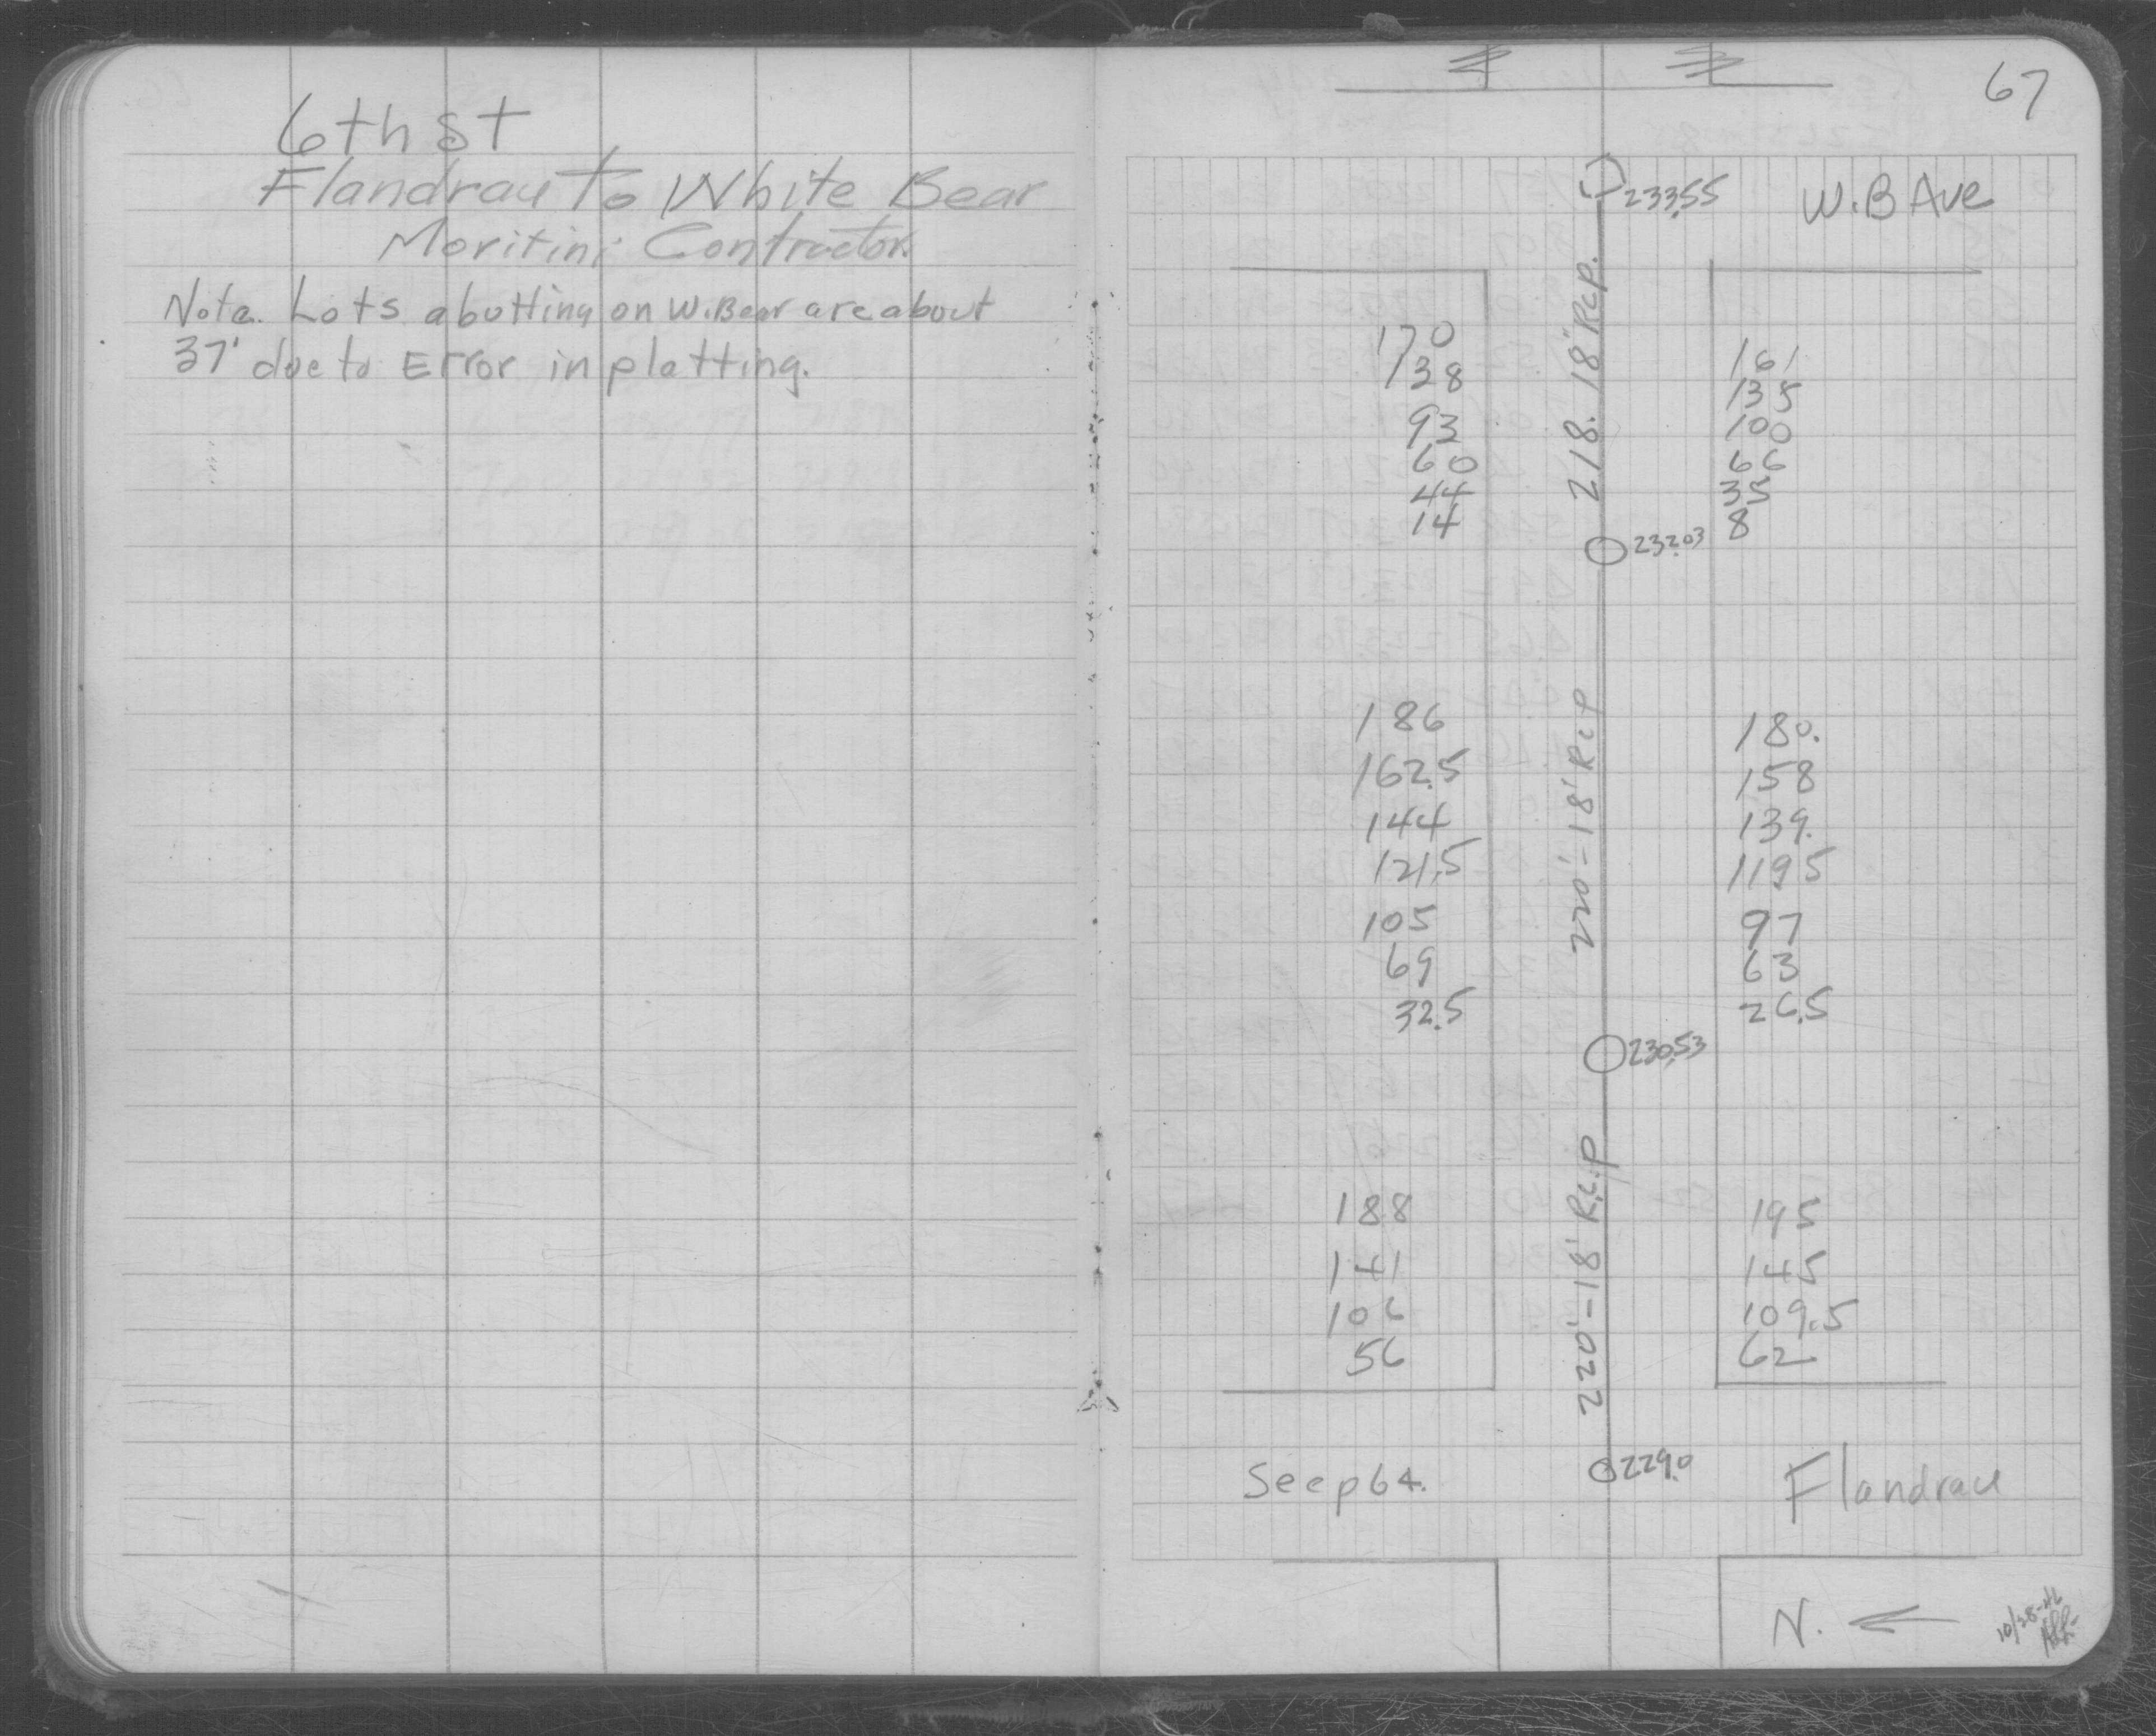 6th st
Flandrau To White Bear
Moritini Contractor.
Note. Lots abutting on W. Bear are about
37' due to Error in platting.
67
233.55 W.B Ave
218. 18' Rcp.
170
138
93
60
44
14
161
135
100
66
35
8
232.03
220'-18' Rcp
186
162.5
144
121.5
105
69
32.5
180.
158
139.
119.5
97
63
26.5
230.53
220'-18' R.c.p
188
141
106
56
195
145
109.5
62
See p 64. 229.0 Flandrau
N.
10/28-46